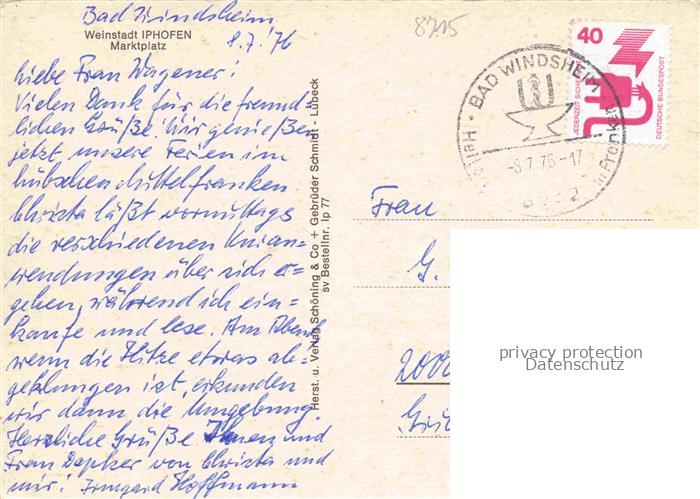 Bad Windsheim
8.7.'76
Weinstadt IPHOFEN
Marktplatz
Liebe Frau Wagener!
Vielen Dank für die freund=
lichen Grüße! Wir genießen
jetzt unsere Ferien im
hübschen Mittelfranken
Christa läßt vormittags
die verschiedenen Kuran=
wendungen über sich er=
gehen, während ich ein=
kaufe und lese. Am Abend
wenn die Hitze etwas ab=
geklungen ist, erkunden
wir dann die Umgebung.
Herzliche Grüße Ihnen und
Frau Depker von Christa und
mir! Irmgard Hoffmann
Herst. u. Verlag Schöning & Co + Gebrüder Schmidt - Lübeck
sv Bestellnr. Ip 77
8715
BAD WINDSHEIM
-8.7.76-17
in Franken
40
JEDERZEIT SICHER
DEUTSCHE BUNDESPOST
Frau
G.
2000
privacy protection
Datenschutz